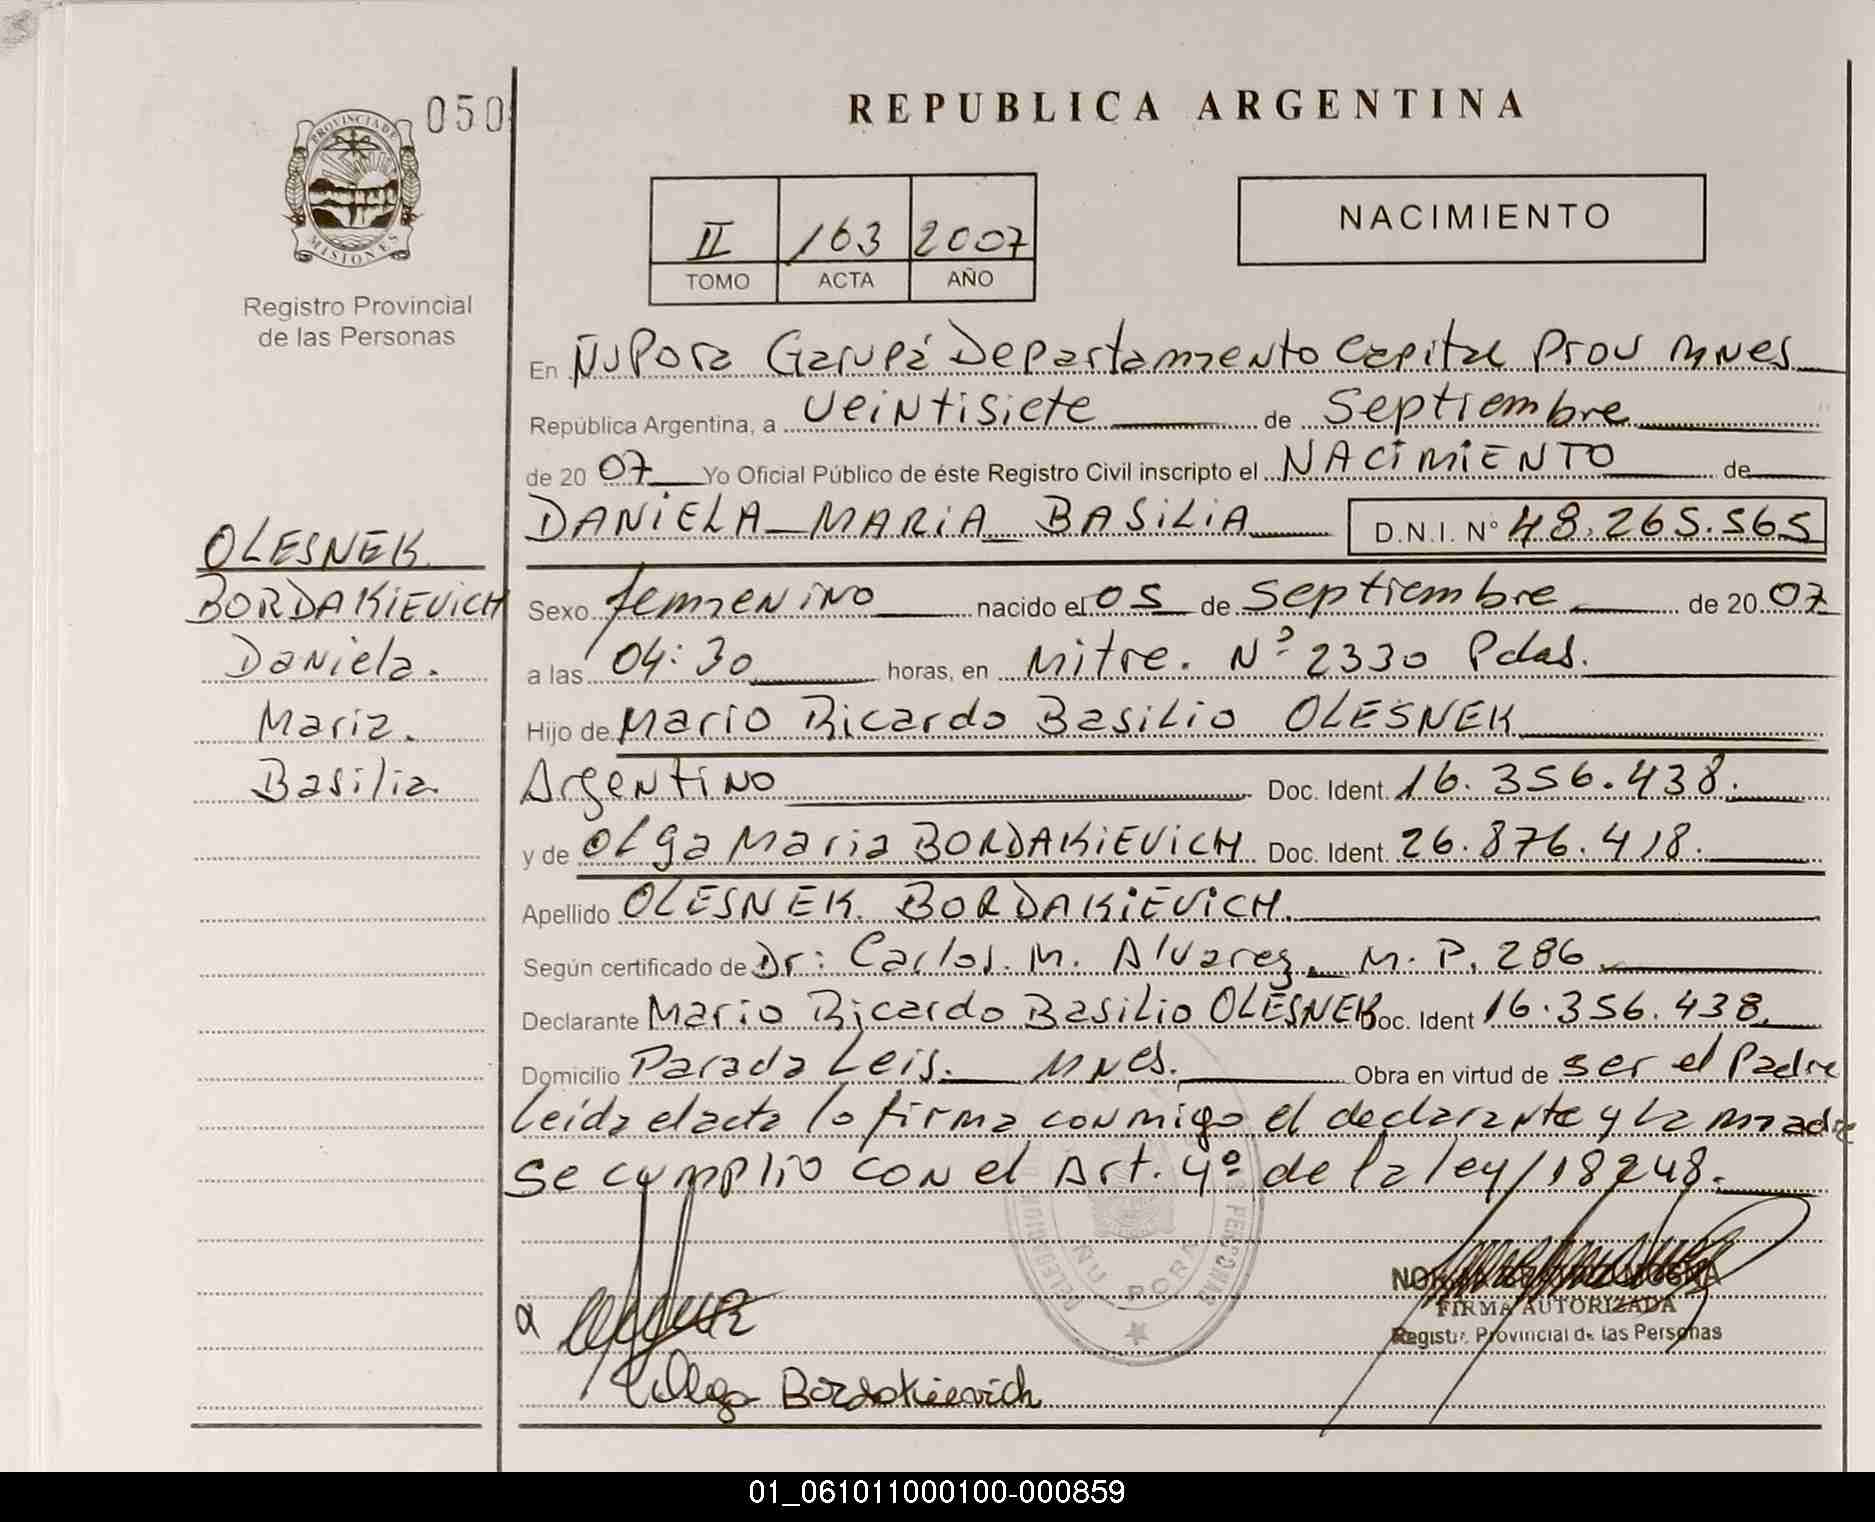 050
REPUBLICA ARGENTINA
PROVINCIA DE
MISIONES
Registro Provincial
de las Personas
II 163 2007
TOMO ACTA AÑO
NACIMIENTO
En Ñu Pora Garupá Departamento Capital Prov Mnes
República Argentina, a veintisiete de Septiembre
de 2007 Yo Oficial Público de éste Registro Civil inscripto el NACIMIENTO de
DANIELA MARIA BASILIA D.N.I. Nº 48.265.565
OLESNEK
BORDAKIEVICH
Daniela.
Maria.
Basilia
Sexo femenino nacido el 05 de septiembre de 2007
a las 04:30 horas, en Mitre. Nº 2330 Pdas.
Hijo de Mario Ricardo Basilio OLESNEK
Argentino Doc. Ident. 16.356.438.
y de Olga Maria BORDAKIEVICH Doc. Ident. 26.876.418.
Apellido OLESNEK BORDAKIEVICH.
Según certificado de Dr: Carlos. M. Alvarez, M.P. 286
Declarante Mario Ricardo Basilio OLESNEK Doc. Ident 16.356.438.
Domicilio Parada Leis. Mnes. Obra en virtud de ser el Padre
Leida el acta lo firma conmigo el declarante y la madre
se cumplio con el Art. 4º de la ley/18248.
ÑU PORA
PERSONAS
FIRMA AUTORIZADA
Registro Provincial de las Personas
Olga Bordakievich
01_061011000100-000859